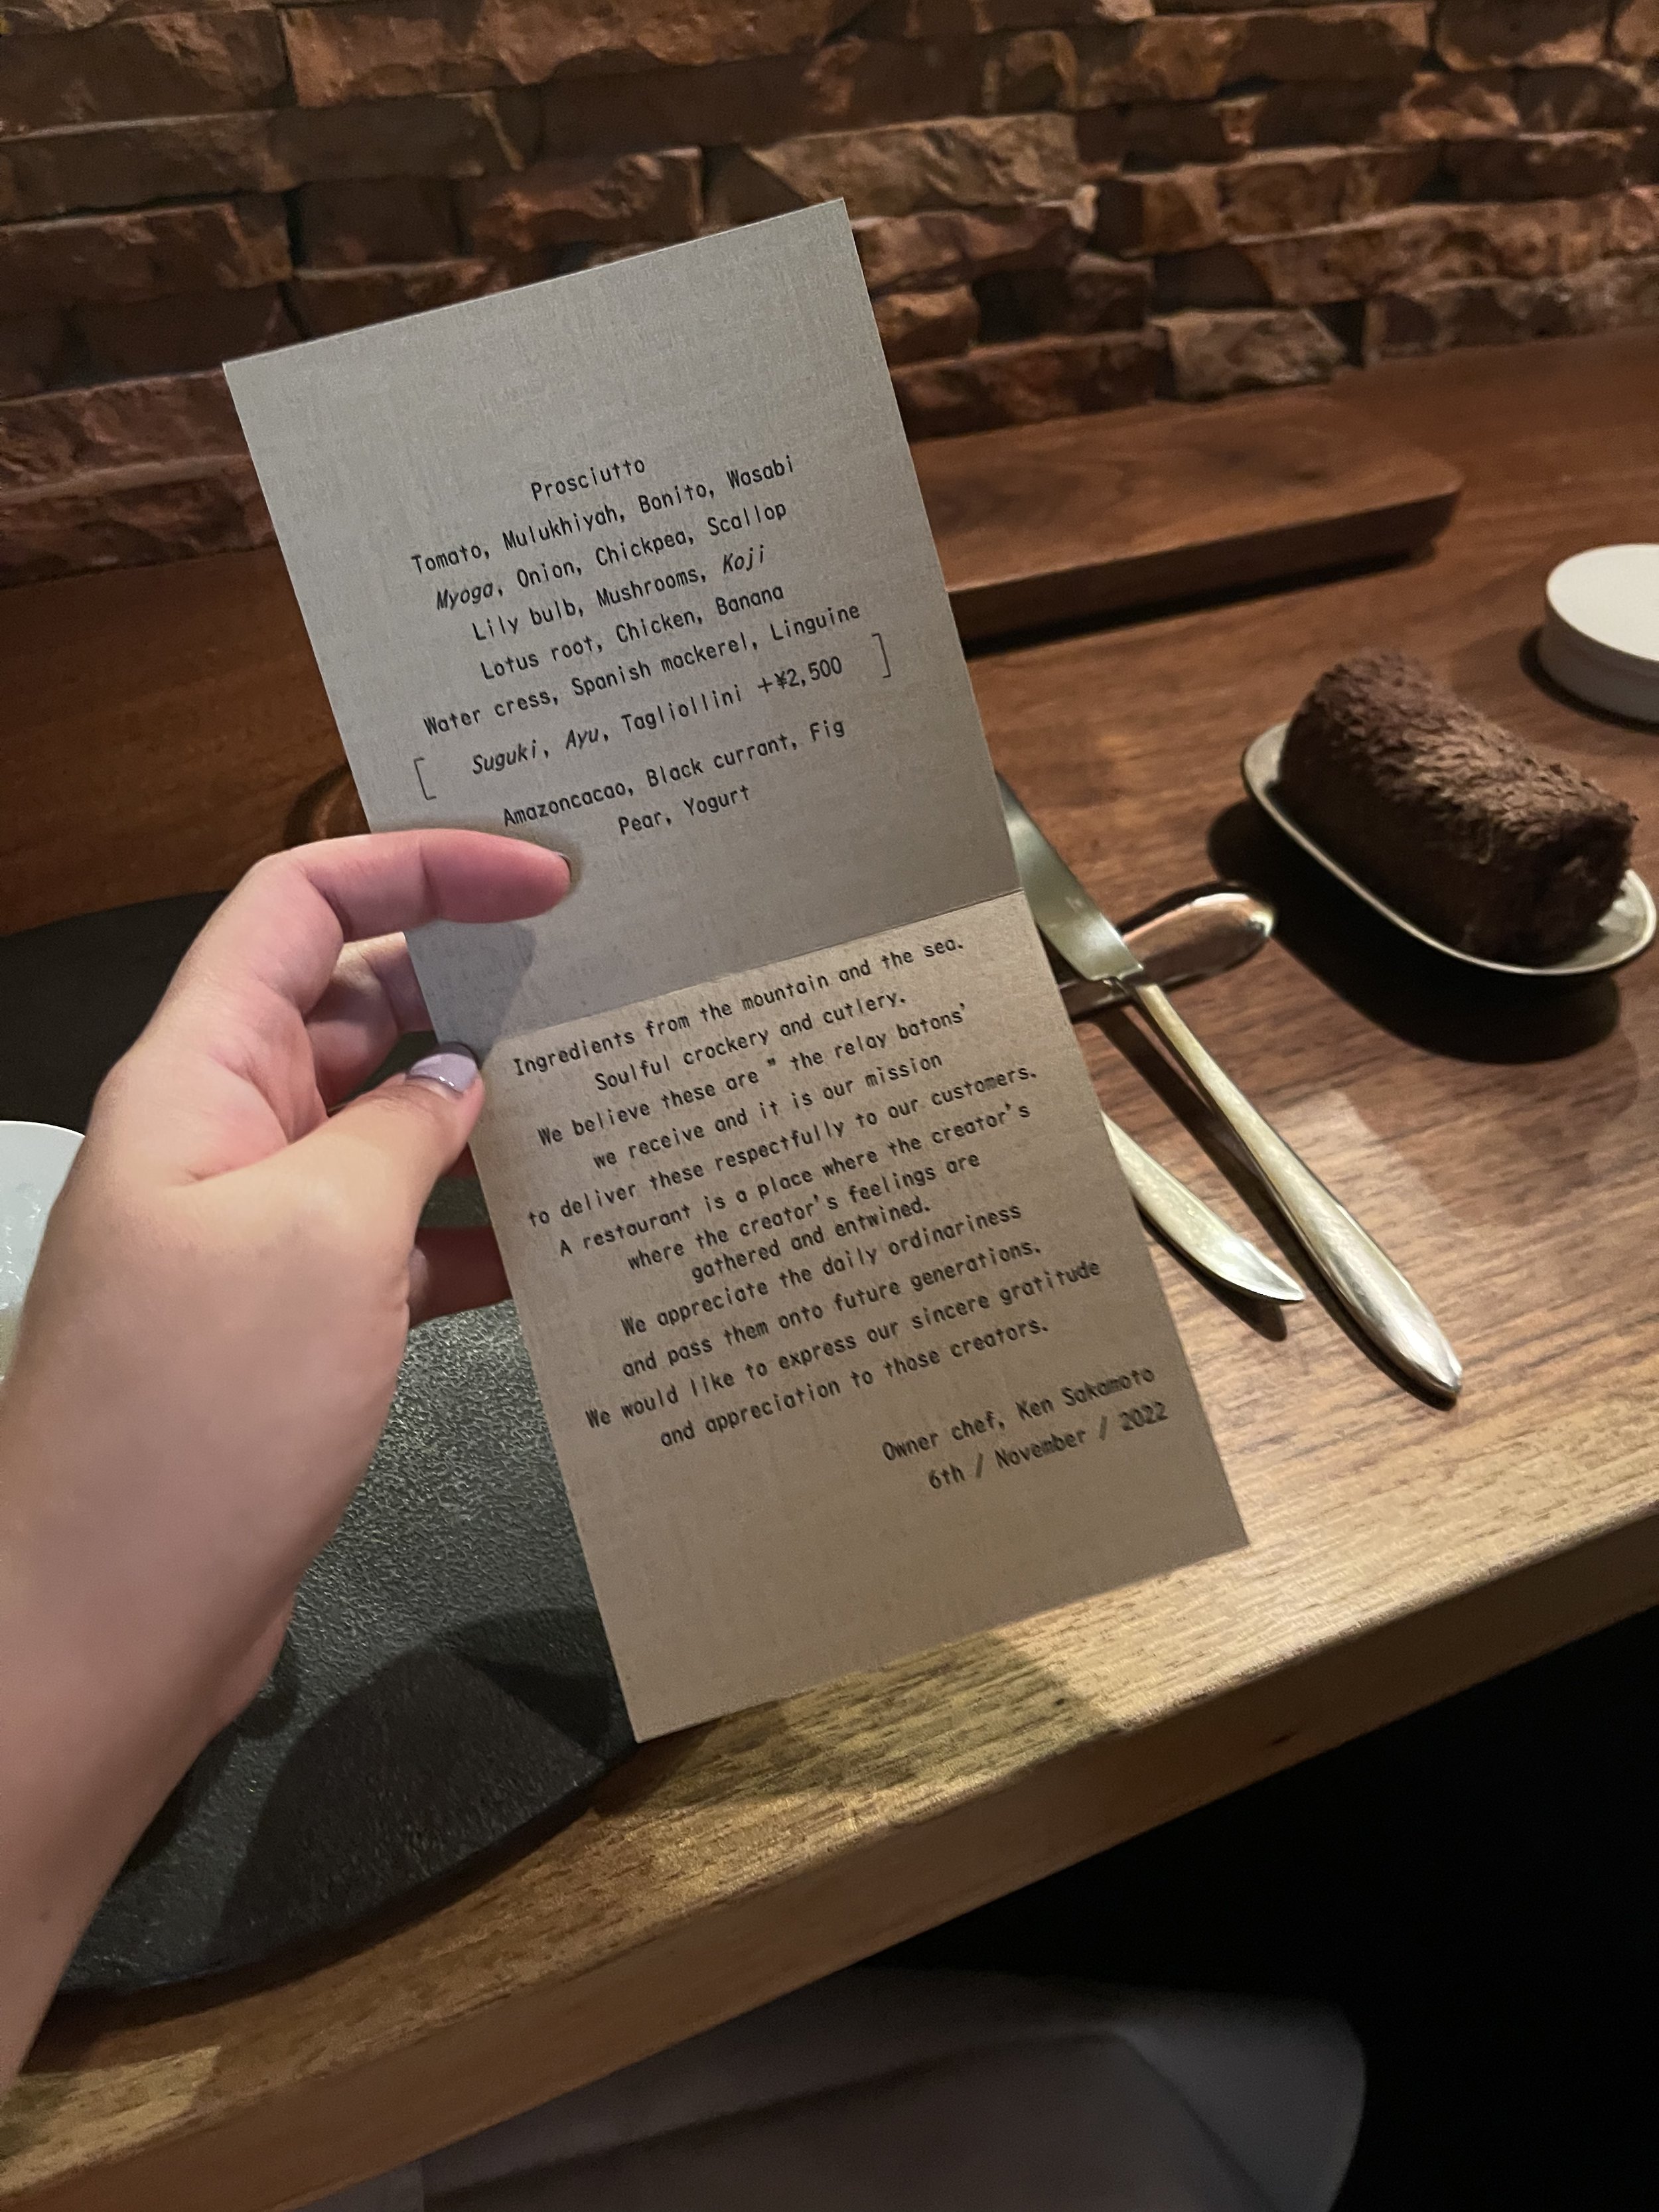 Prosciutto
Tomato, Mulukhiyah, Bonito, Wasabi
Myoga, Onion, Chickpea, Scallop
Lily bulb, Mushrooms, Koji
Lotus root, Chicken, Banana
Water cress, Spanish mackerel, Linguine
[ Suguki, Ayu, Tagliollini +¥2,500 ]
Amazoncacao, Black currant, Fig
Pear, Yogurt
Ingredients from the mountain and the sea.
Soulful crockery and cutlery.
We believe these are " the relay batons'
we receive and it is our mission
to deliver these respectfully to our customers.
A restaurant is a place where the creator's
where the creator's feelings are
gathered and entwined.
We appreciate the daily ordinariness
and pass them onto future generations.
We would like to express our sincere gratitude
and appreciation to those creators.
Owner chef, Ken Sakamoto
6th / November / 2022